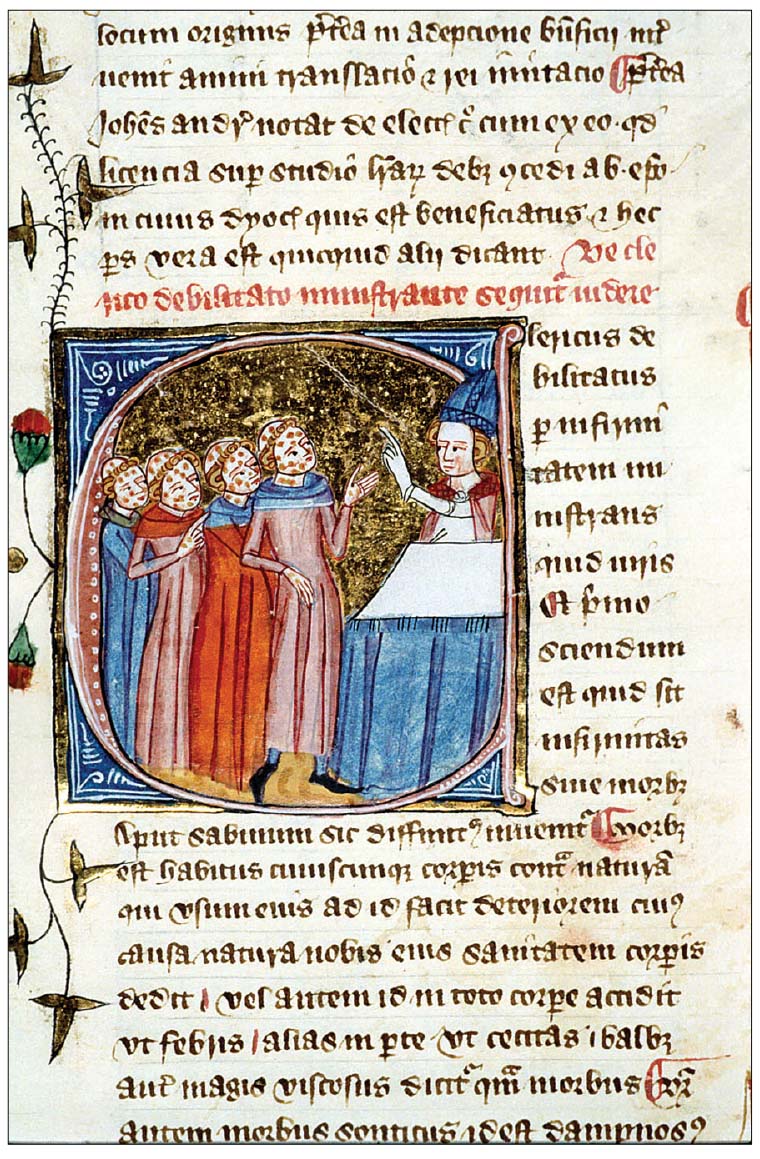 locum originis p̄t̄ea in adepcione b̄n̄ficij int̄
uenit animi translacio ⁊ rei mitacio P̄t̄ea
Joh̄es andr̄ notat de elect̄ c̄ cum ex eo. qd̄
licencia sup studio l̄raꝝ debꝫ ꝯcedi ab. ep̄o
in cuius dyoc̄ quis est beneficiatus ⁊ hec
ps vera est quicquid alij dicant De cle
rico debilitato ministrante sequit᷑ uidere
Clericus de
bilitatus
p infirmi
tatem mi
nistrans
quid iuris
Et p̄mo
sciendum
est quid sit
infirmitas
siue morbꝫ
Aput sabinum sic diffinit᷒ inuenit᷑ Morbꝫ
est habitus cuiuscunqꝫ corp̄is cont̄ naturā
qui vsum eius ad id facit deteriorem cui᷒
causa natura nobis eius sanitatem corp̄is
dedit vel autem id in toto corpe accidit
vt febris alias in p̄te vt cecitas
aut̄ magis viciosus dicit᷑ qm̄ morbus
autem morbus sonticus id est dampnos᷒